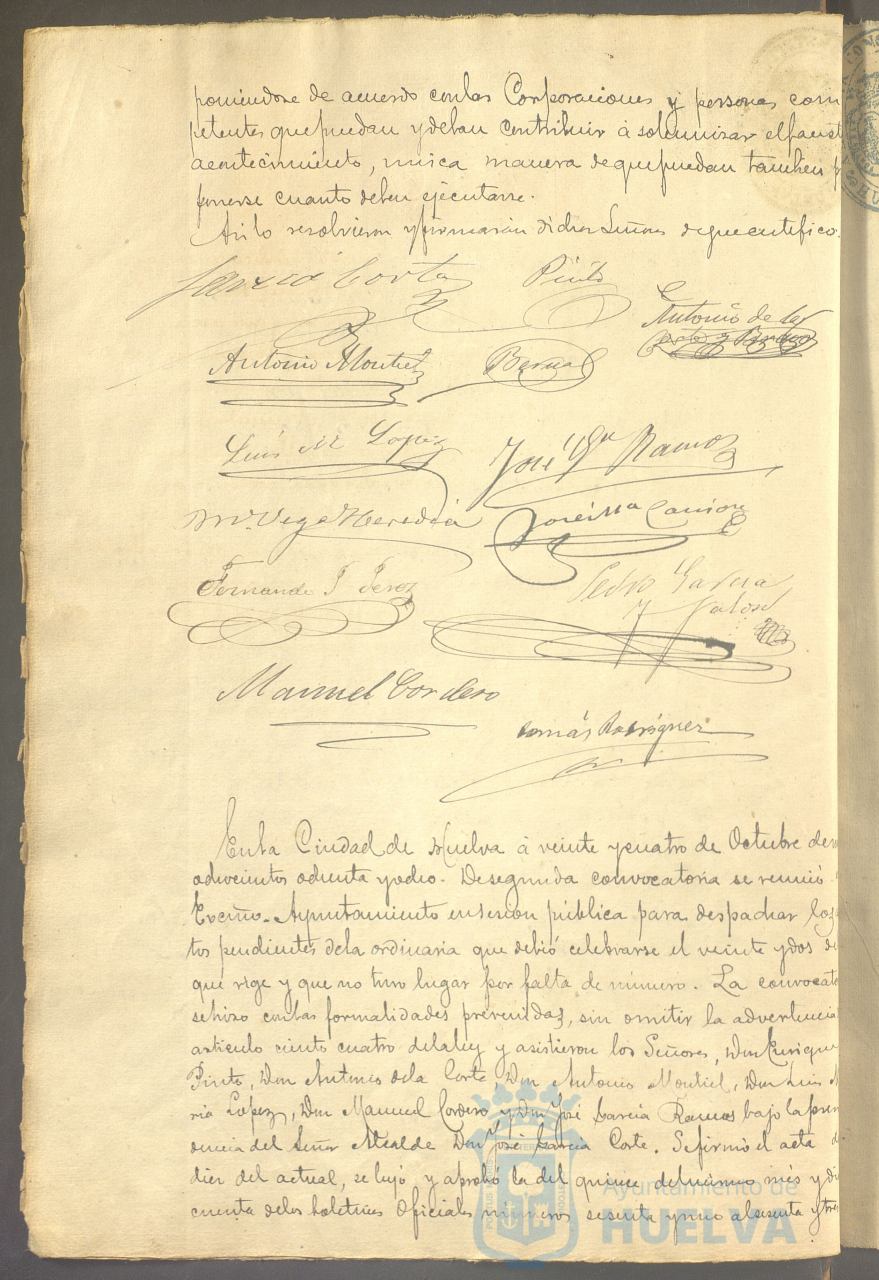 poniendose de acuerdo con las Corporaciones y personas com
petentes que puedan y deban contribuir á solemnizar el faust
acontecimiento, única manera de que puedan tambien
ponerse cuanto deben ejecutarse.
Asi lo resolvieron y firmarán dichos Señores de que certifico.
Garcia Corte
Pinto
Antonio de la
Corte y Bernal
Antonio Montiel
Bernal
Luis M Lopez
José Ga Ramos
M. Vega Heredia
José Mª Carrion
Fernando P Perez
Pedro Garcia
y Jalosd
Manuel Cordero
Tomás Rodriguez
En la Ciudad de Huelva á veinte y cuatro de Octubre de m
ochocientos ochenta y ocho. De segunda convocatoria se reunió
Excmo. Ayuntamiento en sesion pública para despachar los
tos pendientes de la ordinaria que debió celebrarse el veinte y dos de
que rige y que no tuvo lugar por falta de número. La convocato
se hizo con las formalidades prevenidas, sin omitir la advertencia
articulo ciento cuatro de la ley y asistieron los Señores, Don Enrique
Pinto, Don Antonio de la Corte, Don Antonio Montiel, Don Luis M
ria Lopez, Don Manuel Cordero y Don José Garcia Ramos bajo la presi
dencia del Señor Alcalde Don José Garcia Corte. Se firmó el acta d
diez del actual, se leyó y aprobó la del quince del mismo mes y dió
cuenta de los boletines Oficiales números sesenta y uno al sesenta y tres
Ayuntamiento de
HUELVA